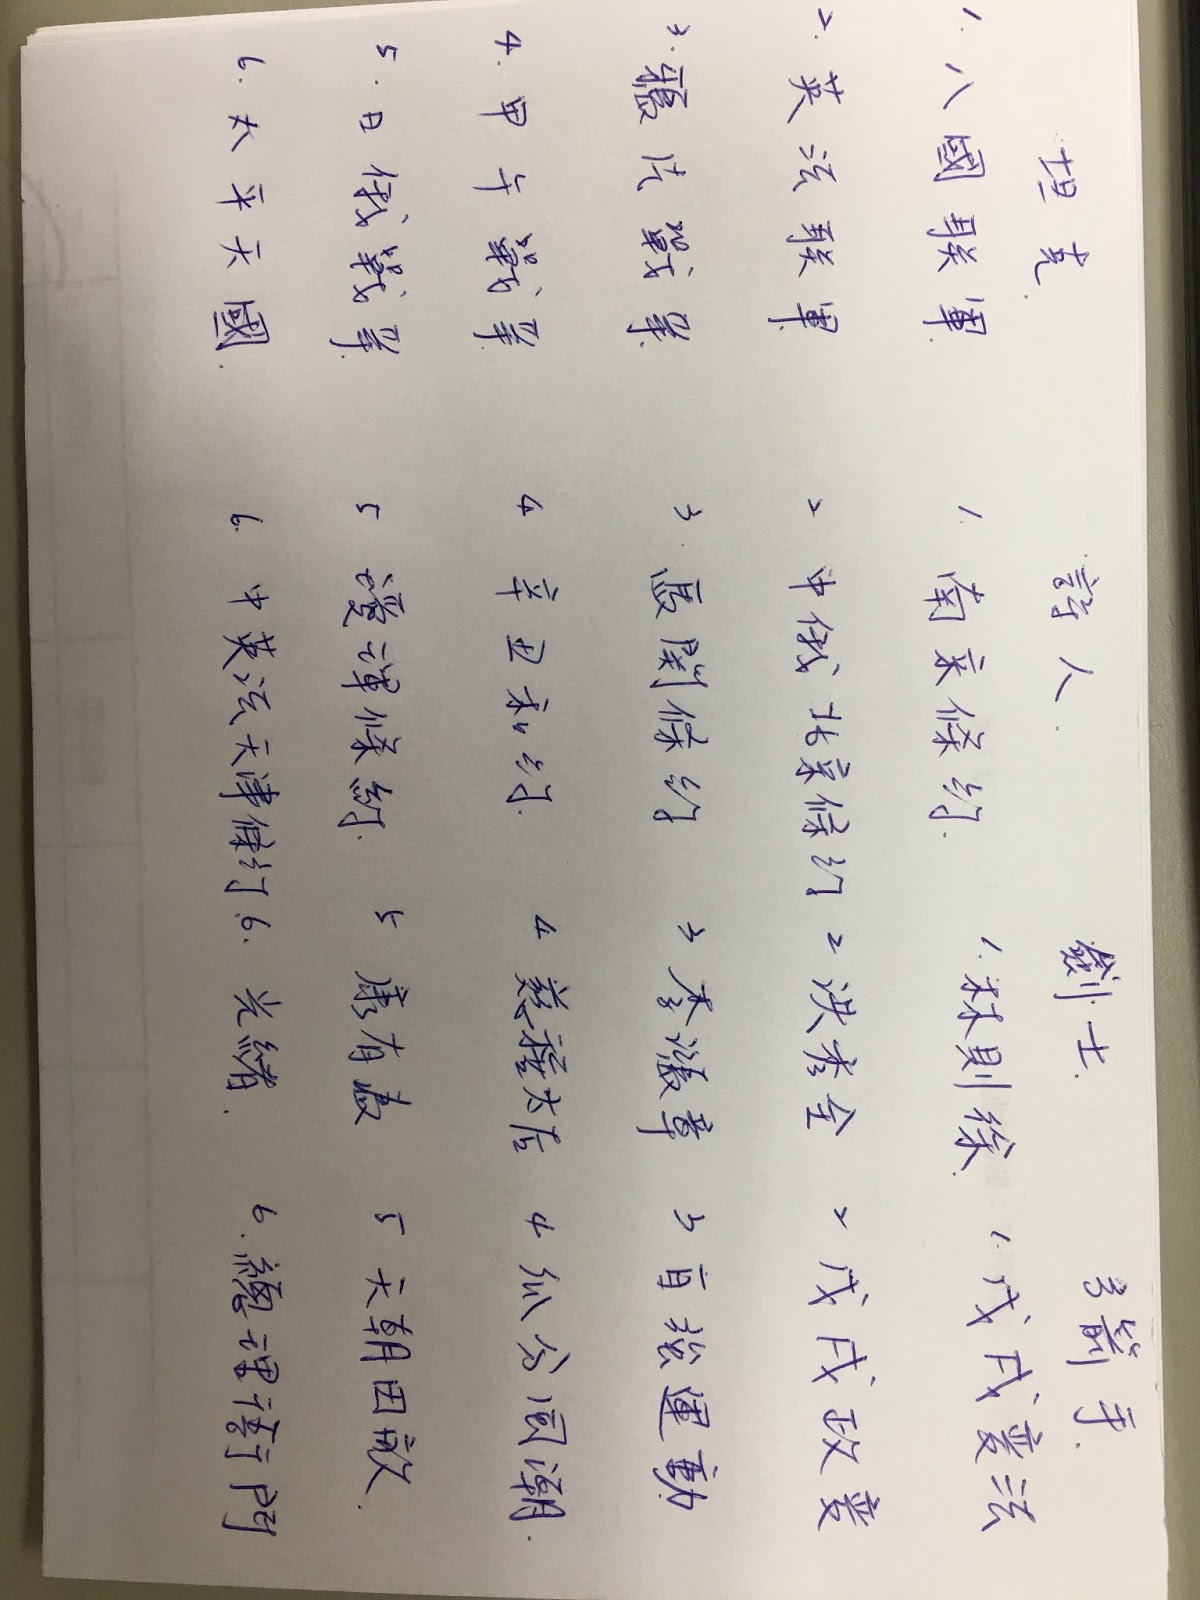 坦克. 詩人. 劍士. 弓箭手.
1. 八國聯軍 1. 南京條約. 1. 林則徐. 1. 戊戌變法
2. 英法聯軍 2 中俄北京條約 2 洪秀全 2 戊戌政變
3. 鴉片戰爭 3 馬關條約 3 李鴻章 3 自強運動
4. 甲午戰爭 4 辛丑和約. 4 慈禧太后 4 瓜分風潮.
5. 日俄戰爭. 5 璦琿條約. 5 康有為 5 天朝田畝.
6. 太平天國. 6. 中英法天津條約 6. 光緒. 6. 總理衙門